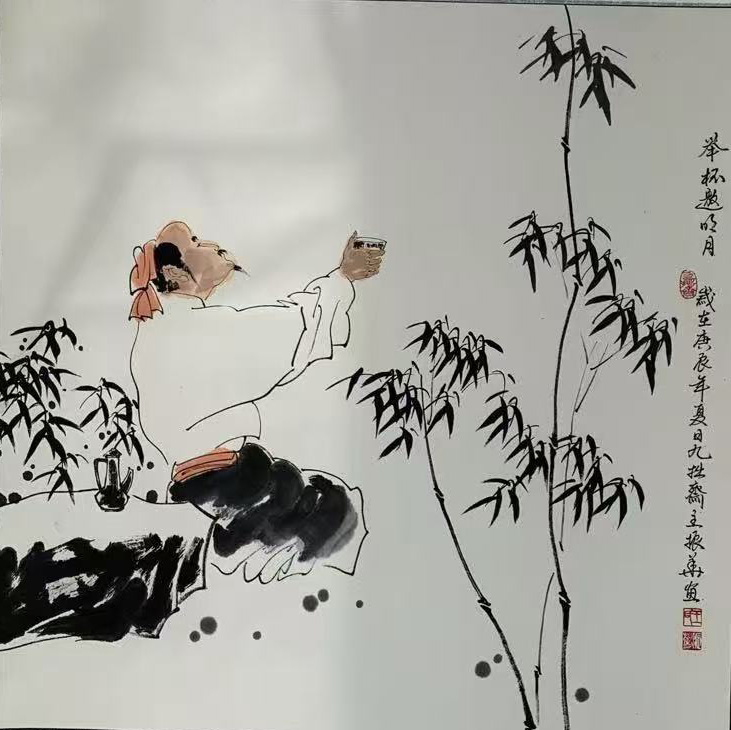 举杯邀明月
岁在庚辰年夏日九拙斋主振华画